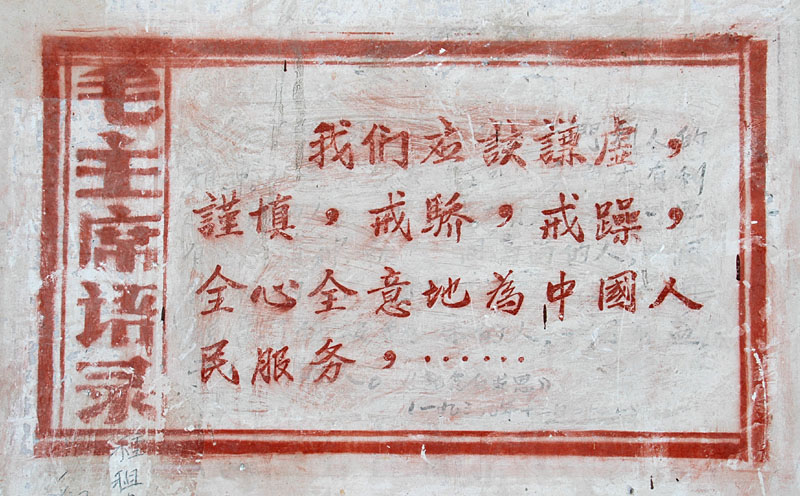 毛主席语录
我们应该謙虚，
謹慎，戒驕，戒躁，
全心全意地為中國人
民服务，……